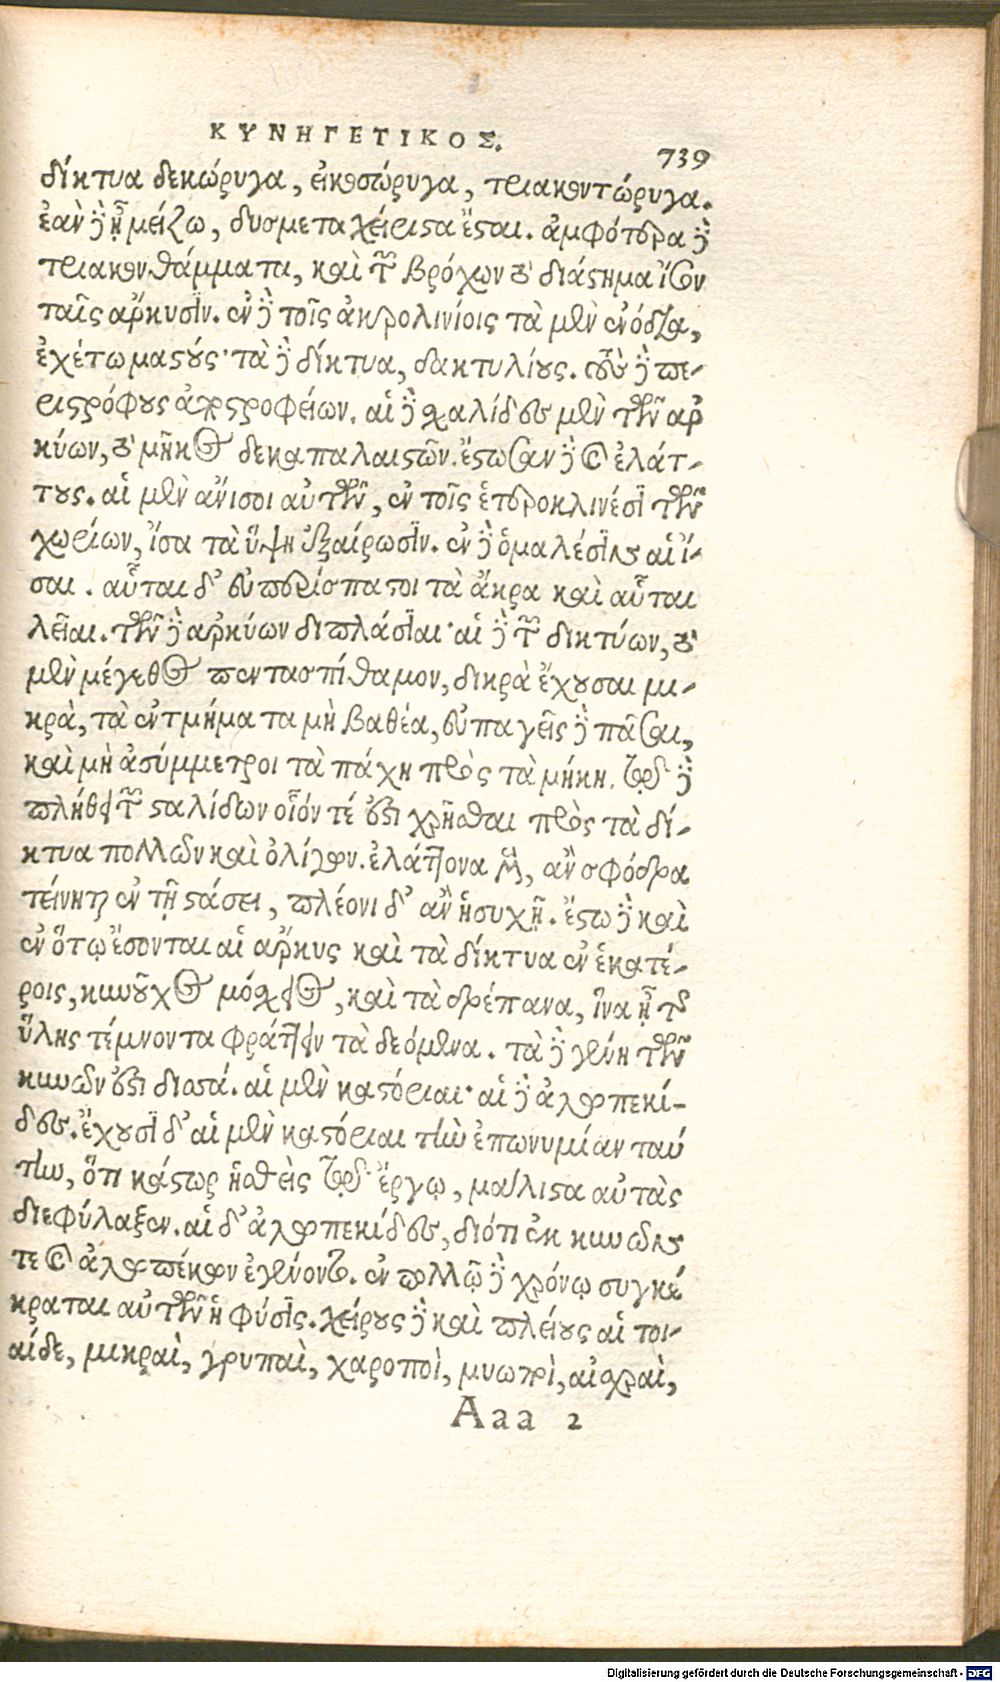 ΚΥΝΗΓΕΤΙΚΟΣ.
739
δίκτυα δεκώρυγα, εἰκοσώρυγα, τριακοντώρυγα.
ἐὰν δὲ ᾖ μείζω, δυσμεταχείριστα ἔσται. ἀμφότερα δὲ
τριακονθάμματα, καὶ τῶν βρόχων τὸ διάστημα ἴσον
ταῖς ἄρκυσιν. ἐν δὲ τοῖς ἀκρολινίοις τὰ μὲν ἐνόδια,
ἐχέτω μαστούς· τὰ δὲ δίκτυα, δακτυλίους. τοὺς δὲ πε-
ριστρόφους ἀπὸ στροφείων. αἱ δὲ χαλίδες μὲν τῶν ἀρ
κύων, τὸ μῆκος δεκαπαλαιστῶν. ἔστωσαν δὲ καὶ ἐλάτ-
τους. αἱ μὲν ἄνισοι αὐτῶν, ἐν τοῖς ἑτεροκλινέσι τῶν
χωρίων, ἵσα τὰ ὕψη ἐξαίρωσιν. ἐν δὲ ὁμαλέσιν αἱ ἴ-
σαι. αὗται δ' εὐπερίσπαστοι τὰ ἄκρα καὶ αὗται
λεῖαι. τῶν δὲ ἀρκύων διπλάσιαι· αἱ δὲ τῶν δικτύων, τὸ
μὲν μέγεθος πεντασπίθαμον, δικρὰ ἔχουσαι μι-
κρὰ, τὰ ἐντμήματα μὴ βαθέα, εὐπαγεῖς δὲ πᾶσαι,
καὶ μὴ ἀσύμμετροι τὰ πάχη πρὸς τὰ μήκη. τῷ δὲ
πλήθει τῶν σταλίδων οἷόν τέ ἐστι χρῆσθαι πρὸς τὰ δί-
κτυα πολλῶν καὶ ὀλίγων. ἐλάττονα μὲν, ἂν σφόδρα
τείνηται ἐν τῇ στάσει, πλέονι δ' ἂν ἡσυχῇ. ἔστω δὲ καὶ
ἐν ὅτῳ ἔσονται αἱ ἄρκυς καὶ τὰ δίκτυα ἐν ἑκατέ-
ροις, κυνοῦχος μόσχειος, καὶ τὰ δρέπανα, ἵνα ᾖ τῆς
ὕλης τέμνοντα φράττειν τὰ δεόμενα. τὰ δὲ γένη τῶν
κυνῶν ἐστι δισσά. αἱ μὲν καστόριαι· αἱ δὲ ἀλωπεκί-
δες. ἔχουσι δ' αἱ μὲν καστόριαι τὴν ἐπωνυμίαν ταύ
την, ὅτι κάστωρ ἡσθεὶς τῷ ἔργῳ, μάλιστα αὐτὰς
διεφύλαξεν. αἱ δ' ἀλωπεκίδες, διότι ἐκ κυνῶν
τε καὶ ἀλωπέκων ἐγένοντο. ἐν πολλῷ δὲ χρόνῳ συγκέ
κραται αὐτῶν ἡ φύσις. χείρους δὲ καὶ πλείους αἱ τοι-
αίδε, μικραὶ, γρυπαὶ, χαροποὶ, μυωποὶ, αἰσχραὶ,
Aaa 2
Digitalisierung gefördert durch die Deutsche Forschungsgemeinschaft - DFG